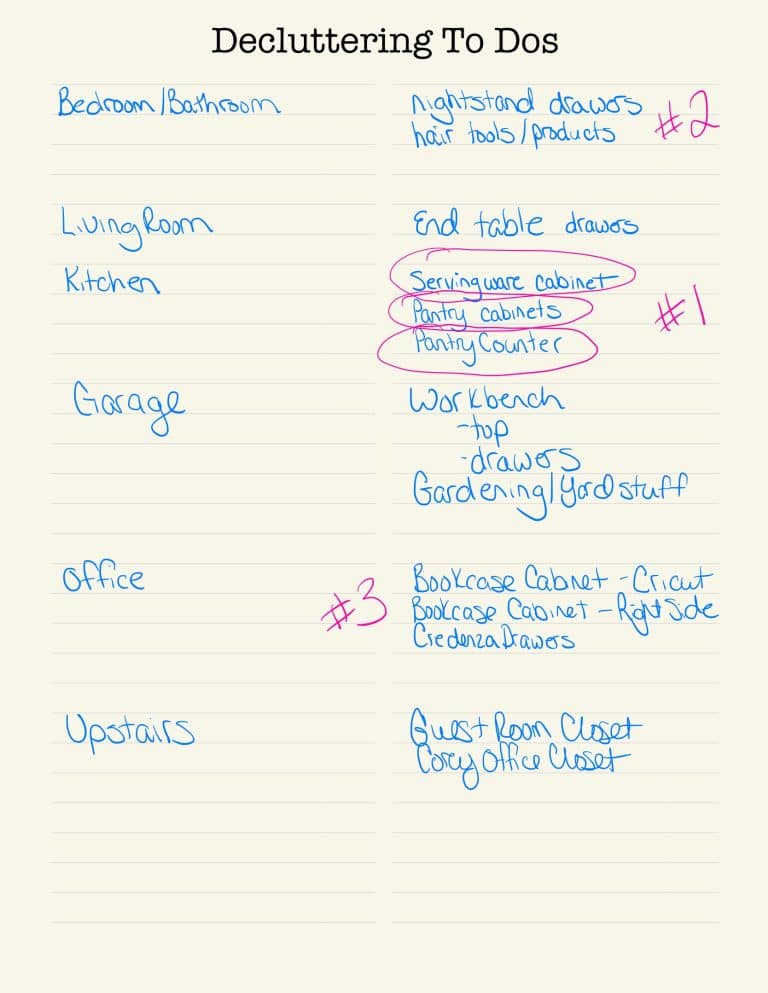 Decluttering To Dos
Bedroom/Bathroom nightstand drawers #2
hair tools/products
Living Room End table drawers
Kitchen Servingware cabinet
Pantry cabinets #1
Pantry Counter
Garage Workbench
-top
-drawers
Gardening/Yard stuff
Office Bookcase Cabnet - Cricut
#3 Bookcase Cabinet - Right Side
Credenza Drawers
Upstairs Guest Room Closet
Corey Office Closet